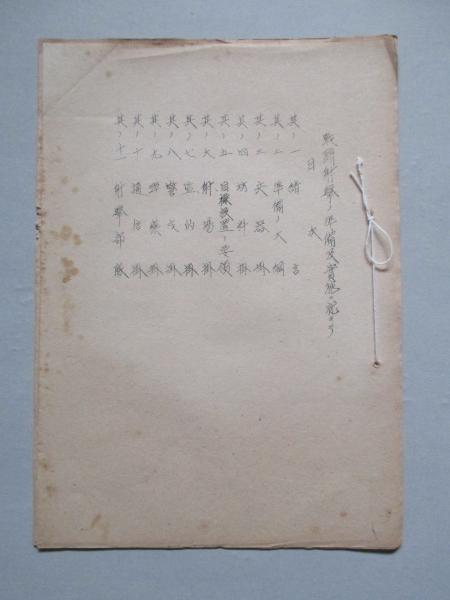 戦闘射撃ノ準備及實施ニ就テ
目次
其ノ一 緒言
其ノ二 準備ノ大綱
其ノ三 兵器掛
其ノ四 材料掛
其ノ五 目標設置ノ要領
其ノ六 射場掛
其ノ七 監的掛
其ノ八 警戒掛
其ノ九 彈藥掛
其ノ十 通信掛
其ノ十一 射撃部隊